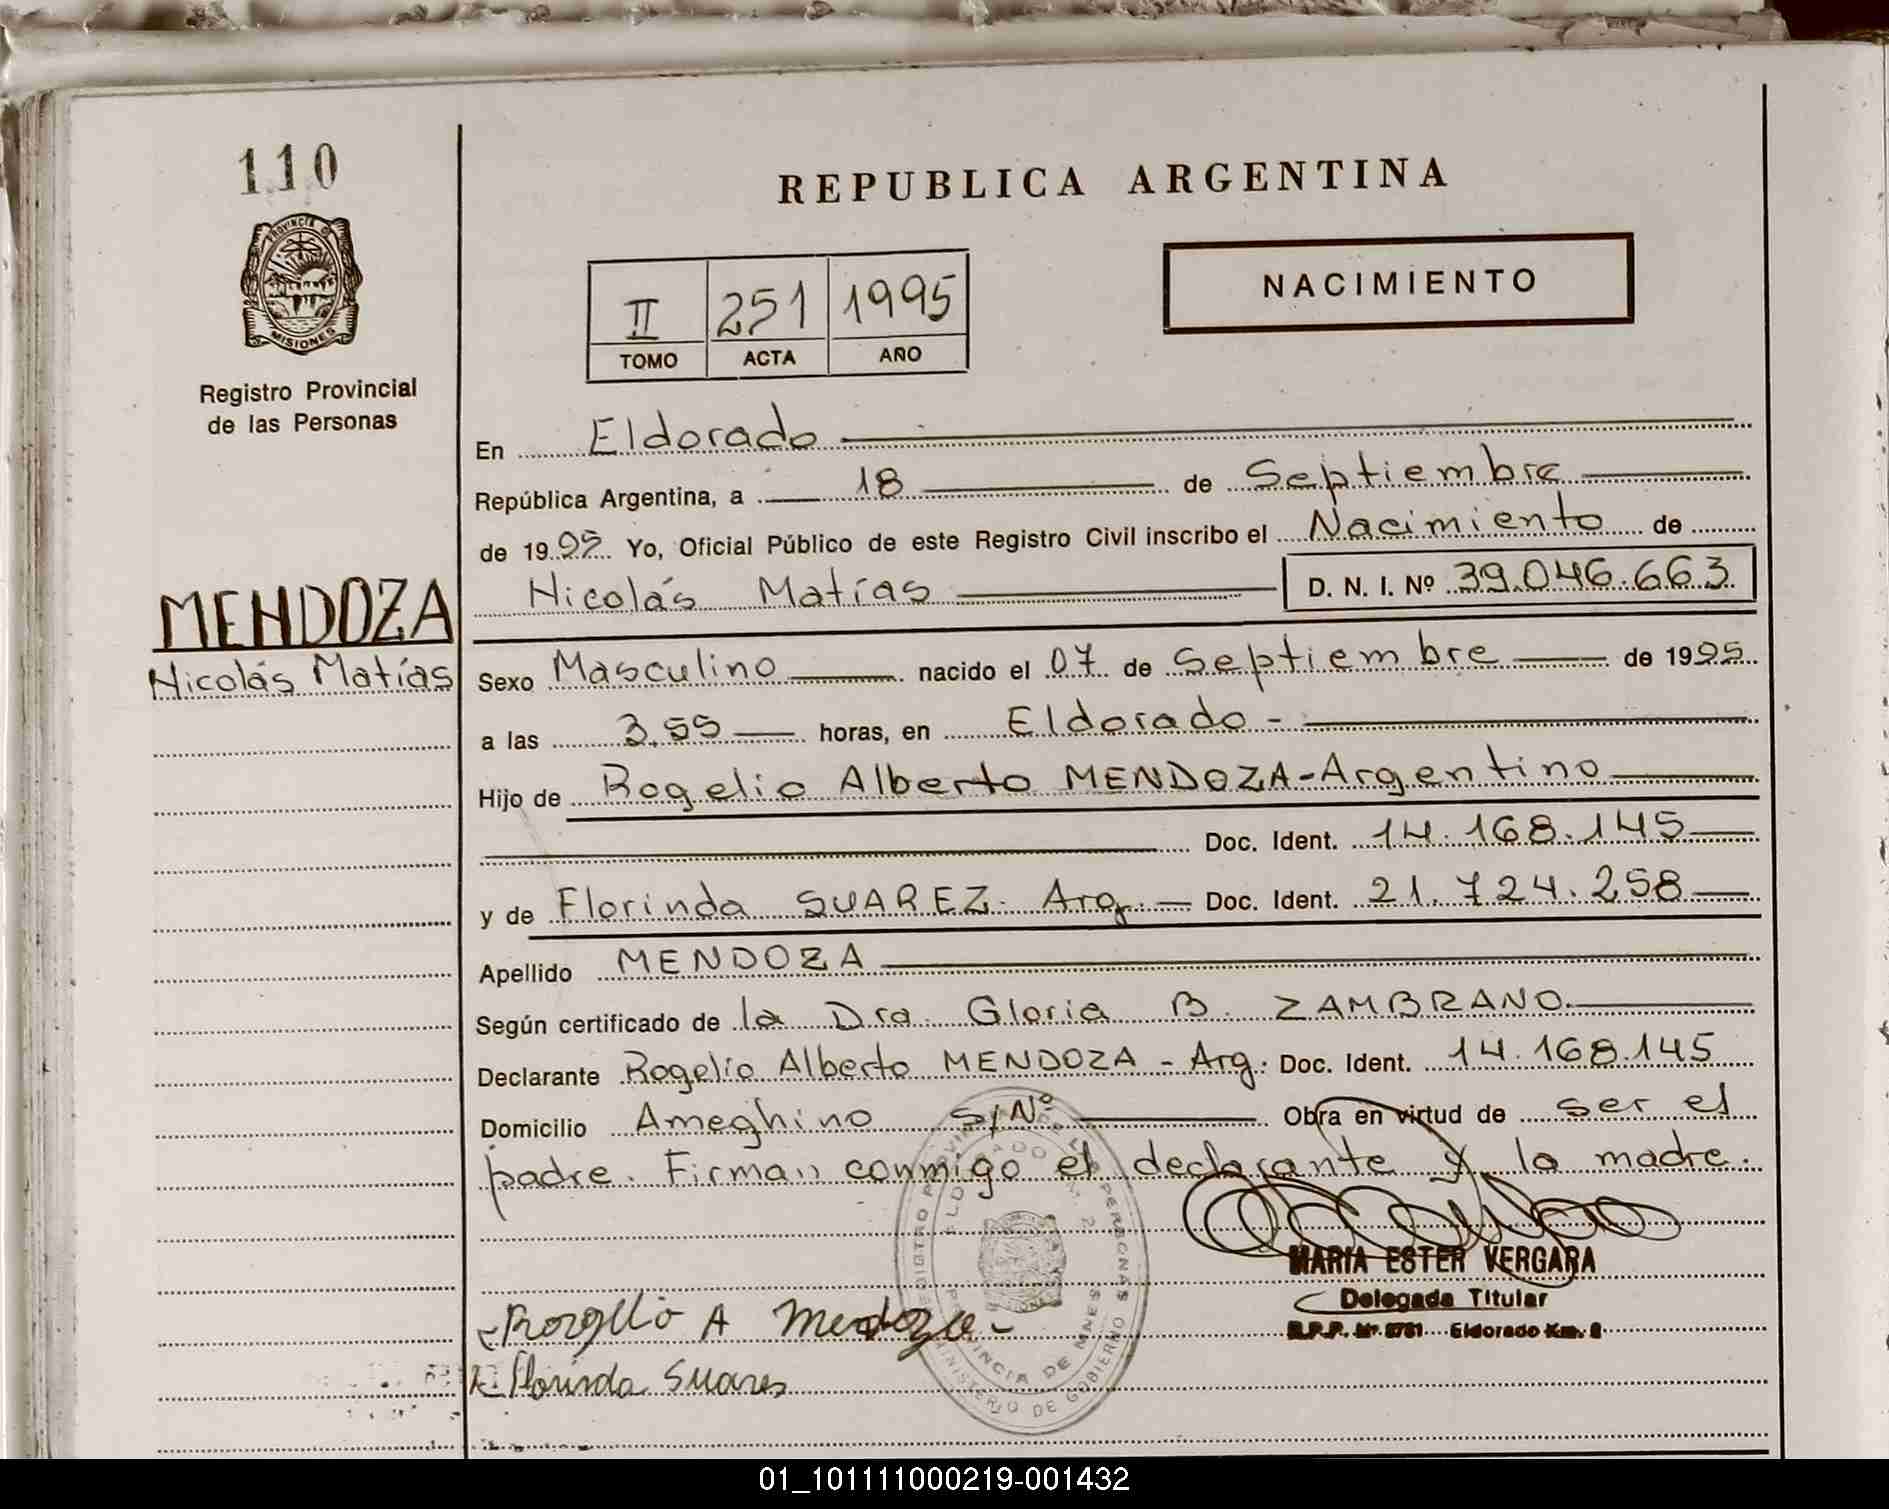 110
PROVINCIA DE
MISIONES
Registro Provincial
de las Personas
MENDOZA
Nicolás Matías
REPUBLICA ARGENTINA
II 251 1995
TOMO ACTA AÑO
NACIMIENTO
En Eldorado
República Argentina, a 18 de Septiembre
de 1995 Yo, Oficial Público de este Registro Civil inscribo el Nacimiento de
Nicolás Matías D. N. I. Nº 39.046.663
Sexo Masculino nacido el 07 de Septiembre de 1995
a las 3.55 horas, en Eldorado -
Hijo de Rogelio Alberto MENDOZA - Argentino
Doc. Ident. 14.168.145
y de Florinda SUAREZ. Arg. Doc. Ident. 21.724.258
Apellido MENDOZA
Según certificado de la Dra. Gloria B. ZAMBRANO.
Declarante Rogelio Alberto MENDOZA - Arg. Doc. Ident. 14.168.145
Domicilio Ameghino S/Nº Obra en virtud de ser el
padre. Firman conmigo el declarante y la madre.
MARIA ESTER VERGARA
Delegada Titular
Eldorado Km. 2
Rogelio A Mendoza
Florinda Suares
PROVINCIA DE MNES
MINISTERIO DE GOBIERNO
01_101111000219-001432